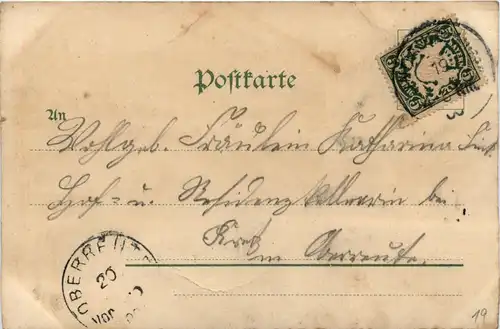 Postkarte
An
Wohlgeb. Fräulein Katharina
Hof- u. Residenzkellnerin bei
in Oberreute.
OBERREUTE
20
19